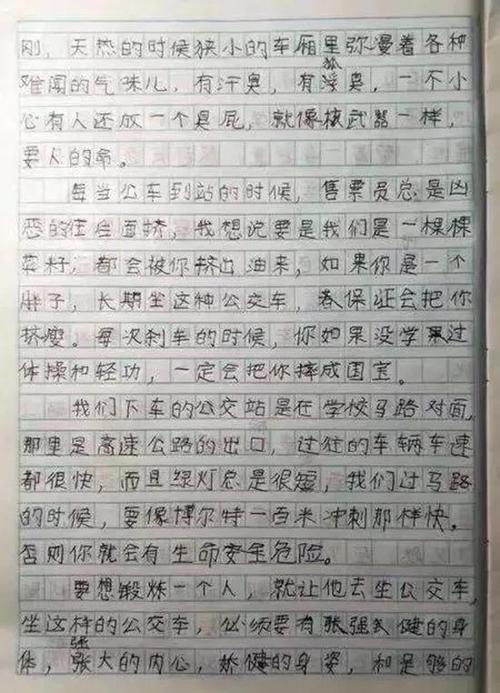 刚，天热的时候狭小的车厢里弥漫着各种
难闻的气味儿，有汗臭，有狐臭，一不小
心有人还放一个臭屁，就像核武器一样，
要人的命。
每当公车到站的时候，售票员总是凶
恶的往后面挤，我想说要是我们是一棵棵
菜籽，都会被你挤出油来，如果你是一个
胖子，长期坐这种公交车，卷保证会把你
挤瘦。每次刹车的时候，你如果没学过
体操和轻功，一定会把你摔成国宝。
我们下车的公交站是在学校马路对面，
那里是高速公路的出口，过往的车辆车速
都很快，而且绿灯总是很短，我们过马路
的时候，要像博尔特一百米冲刺那样快。
否则你就会有生命安全危险。
要想锻炼一个人，就让他去坐公交车，
坐这样的公交车，必须要有强健的身
体，强大的内心，娇健的身姿，和足够的